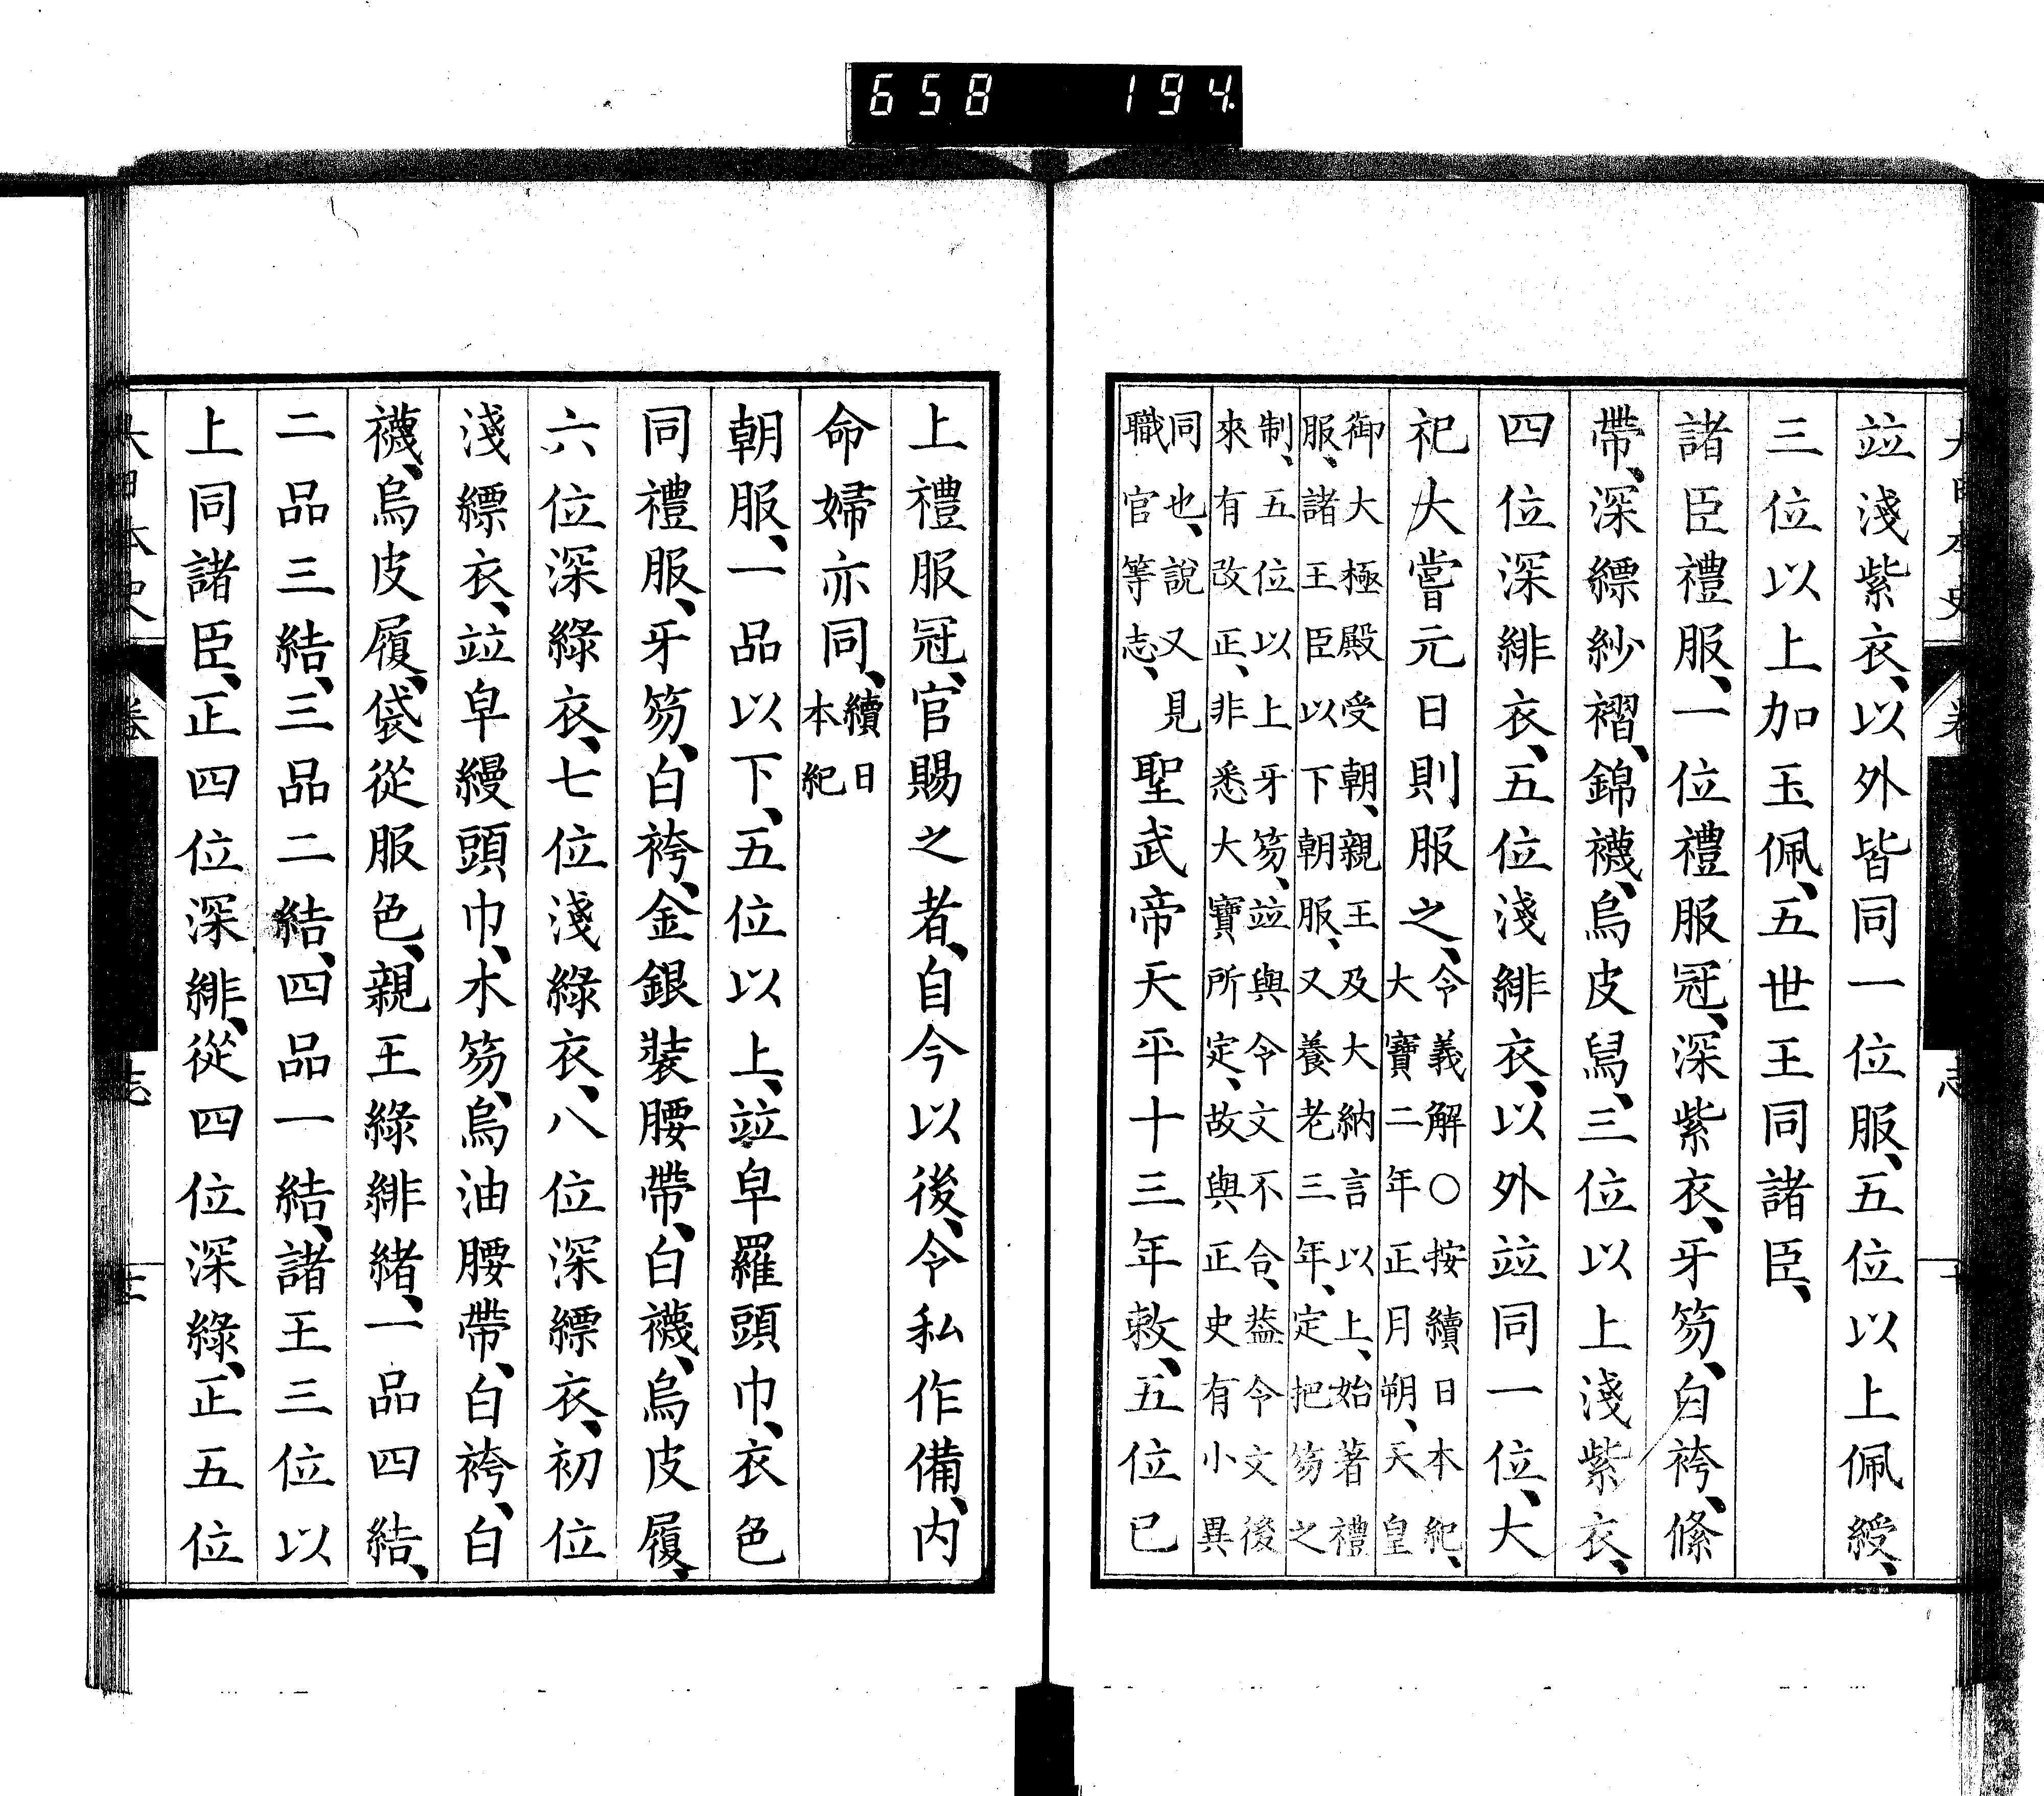 658 194
大日本史 卷 志
竝淺紫衣、以外皆同一位服、五位以上佩綬、
三位以上加玉佩、五世王同諸臣、
諸臣禮服、一位禮服冠、深紫衣、牙笏、白袴、絛
帶、深縹紗褶、錦襪、烏皮舄、三位以上淺紫衣、
四位深緋衣、五位淺緋衣、以外竝同一位、大
祀大嘗元日則服之、令義解○按續日本紀、大寶二年正月朔、天皇
御大極殿受朝、親王及大納言以上、始著禮服、諸王臣以下朝服、又養老三年、定把笏之
制、五位以上牙笏、竝與令文不合、蓋令文後來有改正、非悉大寶所定、故與正史有小異
同也、說又見職官等志、聖武帝天平十三年敕、五位已
上禮服冠、官賜之者、自今以後、令私作備、内
命婦亦同、續日本紀
朝服、一品以下、五位以上、竝皁羅頭巾、衣色
同禮服、牙笏、白袴、金銀裝腰帶、白襪、烏皮履、
六位深綠衣、七位淺綠衣、八位深縹衣、初位
淺縹衣、竝皁縵頭巾、木笏、烏油腰帶、白袴、白
襪、烏皮履、袋從服色、親王綠緋緒、一品四結、
二品三結、三品二結、四品一結、諸王三位以
上同諸臣、正四位深緋、從四位深綠、正五位
大日本史 卷 志